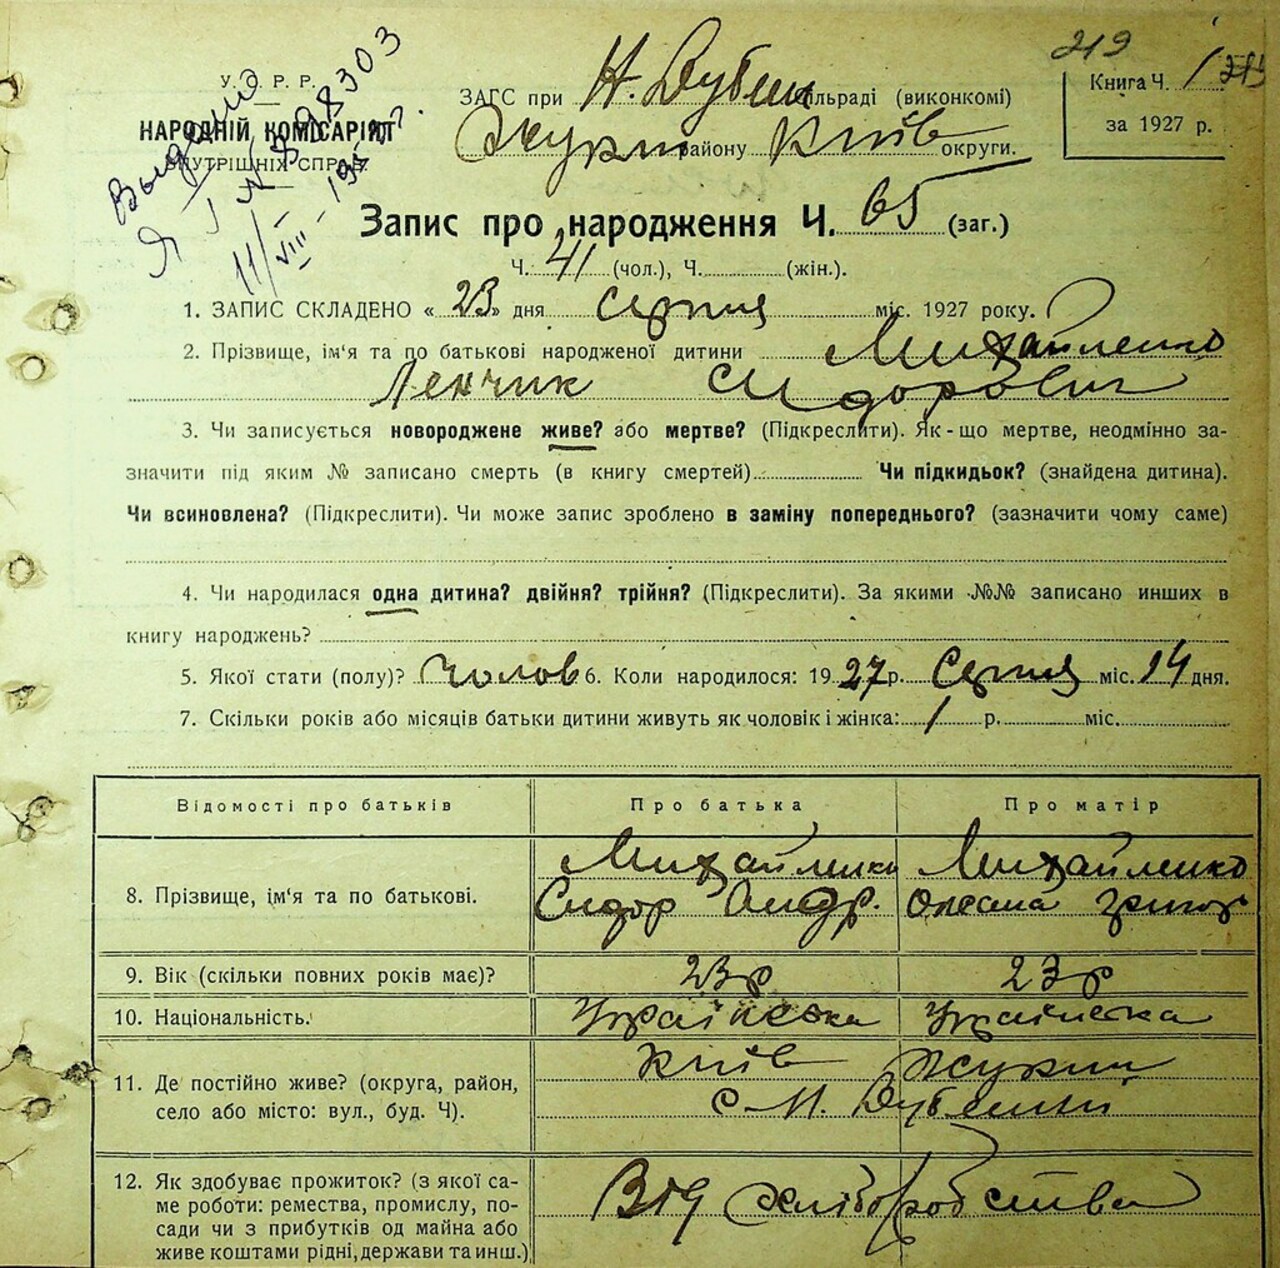 219
У. С. Р. Р.
НАРОДНІЙ КОМІСАРІЯТ
ВНУТРІШНІХ СПРАВ
Выдано
Я
11/VIII
ЗАГС при Н. Дубеч сільраді (виконкомі)
Жукин району Київ округи.
Книга Ч. 1
за 1927 р.
Запис про народження Ч. 65 (заг.)
Ч. 41 (чол.), Ч. (жін.).
1. ЗАПИС СКЛАДЕНО « 23 » дня Серпня міс. 1927 року.
2. Прізвище, ім'я та по батькові народженої дитини Михайленко
Ленчик Сидорович
3. Чи записується новороджене живе? або мертве? (Підкреслити). Як-що мертве, неодмінно за-
значити під яким № записано смерть (в книгу смертей) Чи підкидьок? (знайдена дитина).
Чи всиновлена? (Підкреслити). Чи може запис зроблено в заміну попереднього? (зазначити чому саме)
4. Чи народилася одна дитина? двійня? трійня? (Підкреслити). За якими №№ записано инших в
книгу народжень?
5. Якої стати (полу)? Чолов 6. Коли народилося: 1927 р. Серпня міс. 14 дня.
7. Скільки років або місяців батьки дитини живуть як чоловік і жінка: 1 р. міс.
Відомості про батьків Про батька Про матір
8. Прізвище, ім'я та по батькові. Михайленко Михайленко
Сидор Андр. Оксана Григор
9. Вік (скільки повних років має)? 23 р 23 р
10. Національність. Українська Українська
11. Де постійно живе? (округа, район, Київ Жукин
село або місто: вул., буд. Ч). с Н. Дубечні
12. Як здобуває прожиток? (з якої са-
ме роботи: ремества, промислу, по- Від хліборобства
сади чи з прибутків од майна або
живе коштами рідні, держави та инш.)